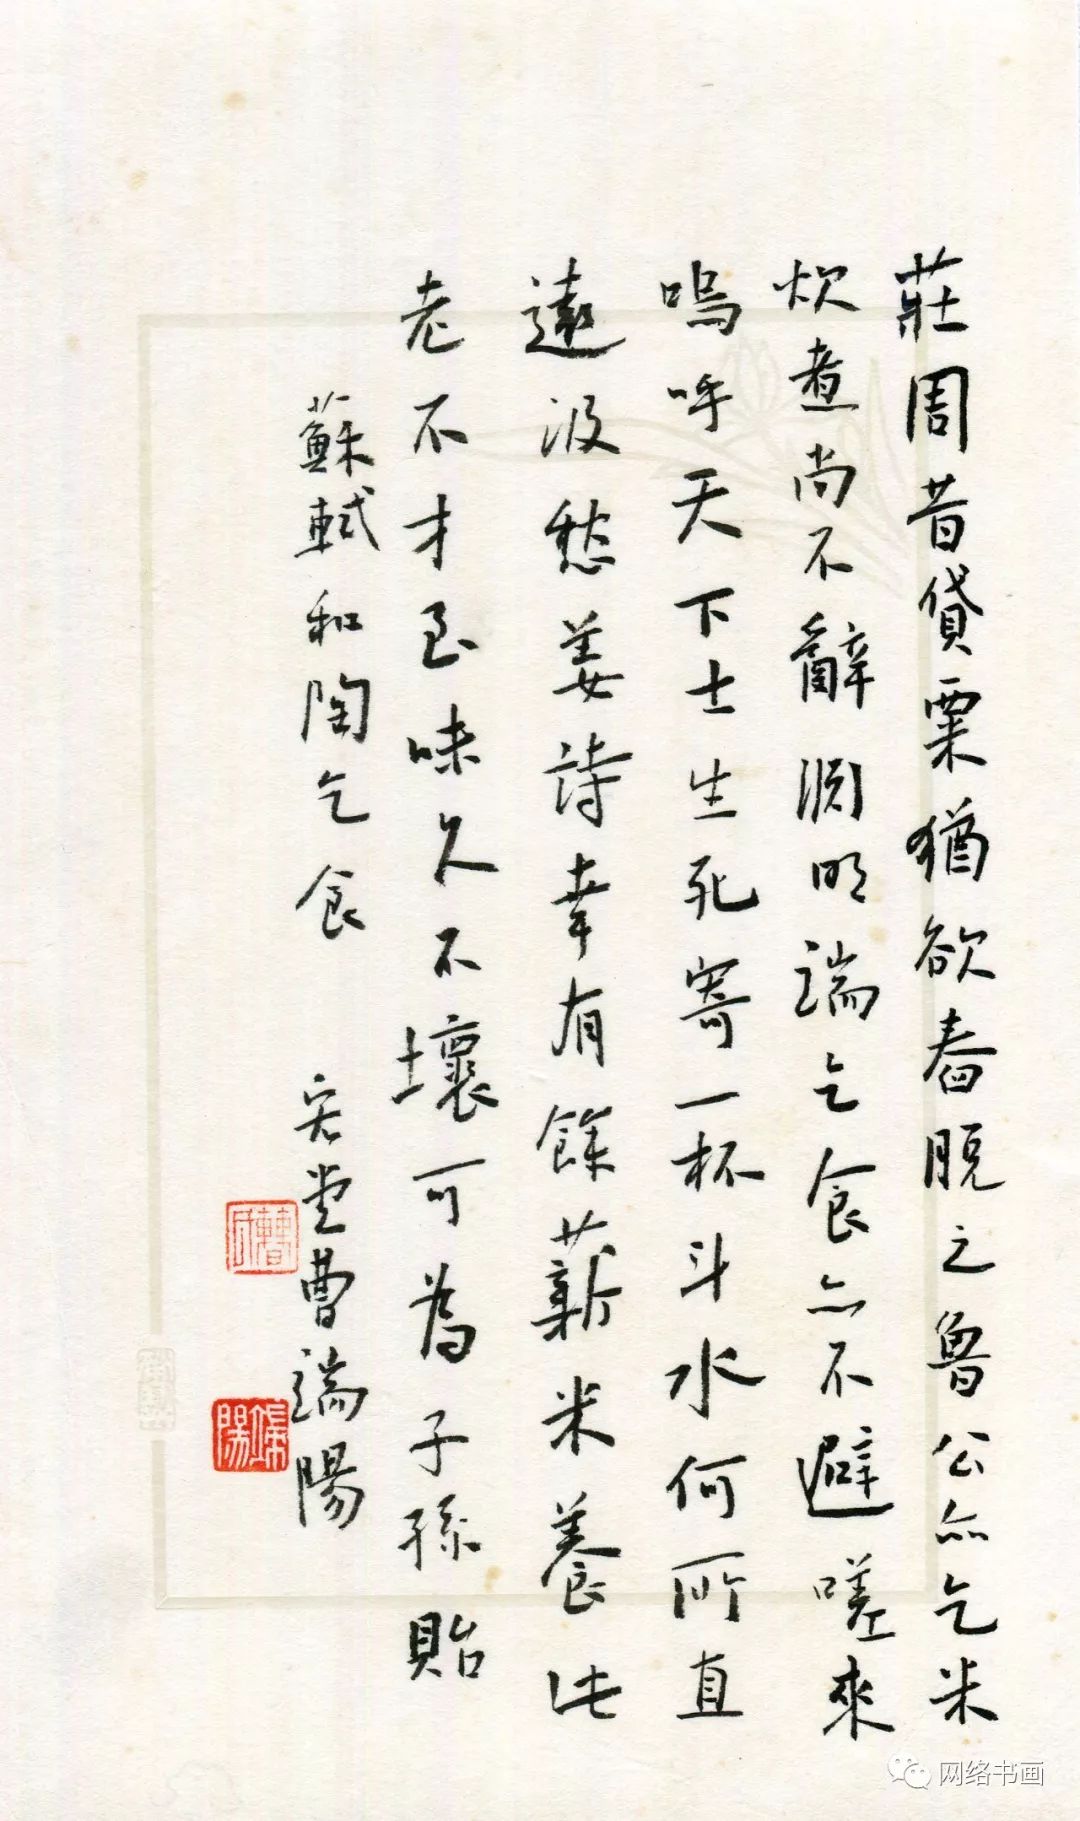 莊周昔貸粟猶欲舂脫之魯公亦乞米
炊煮尚不辭淵明端乞食亦不避嗟來
嗚呼天下士生死寄一杯斗水何所直
遠汲愁姜詩幸有餘薪米養此
老不才至味久不壞可為子孫貽
蘇軾和陶乞食
堂曹端陽
端陽
网络书画